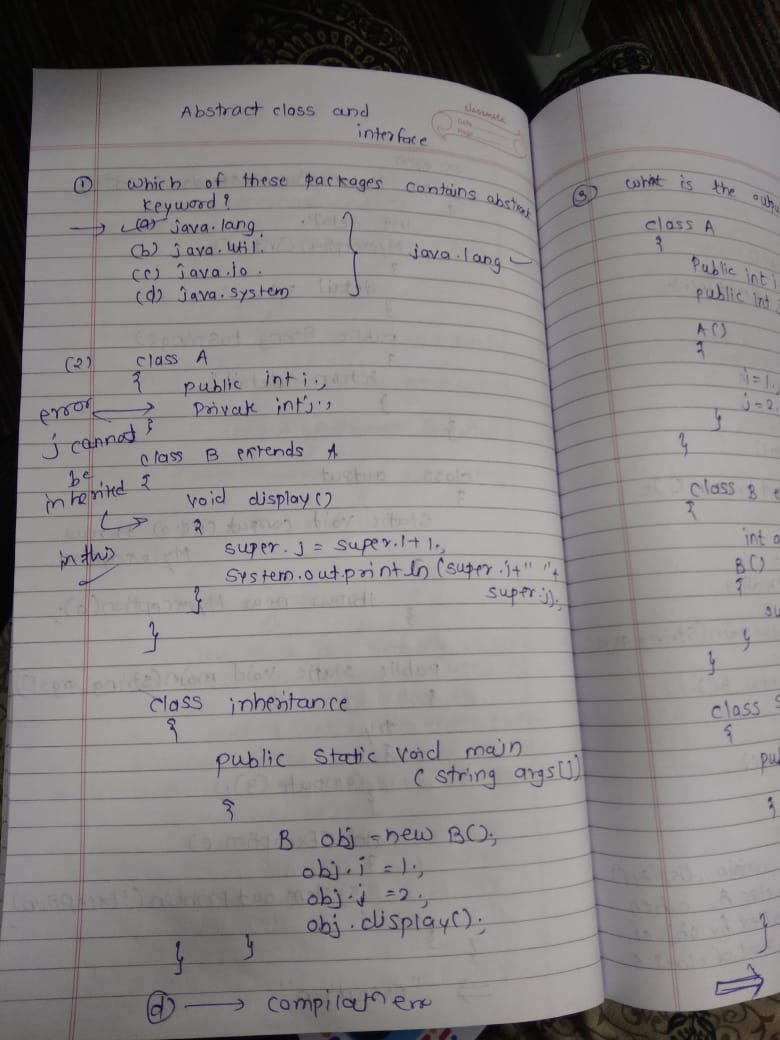 Abstract class and
interface
classmate
Date
Page
① which of these packages contains abstract
keyword?
→ (a) java.lang
(b) java.util.
(c) java.Io.
(d) java.system
java.lang
(2) class A
{ public int i;
private int j;
}
error
j cannot
be
inherited
in this
class B extends A
{
void display()
{
super.j = super.i+1;
System.out.println (super.i+" "+
super.j);
}
}
class inheritance
{
public static void main
(string args[])
{
B obj = new B();
obj.i =1;
obj.j =2;
obj.display();
} }
(d) →
③ what is the
class A
{
Public int i
public int
A()
{
i=1;
j=2;
}
}
class B
{
int
B()
{
su
}
}
class
{
pu
{
}